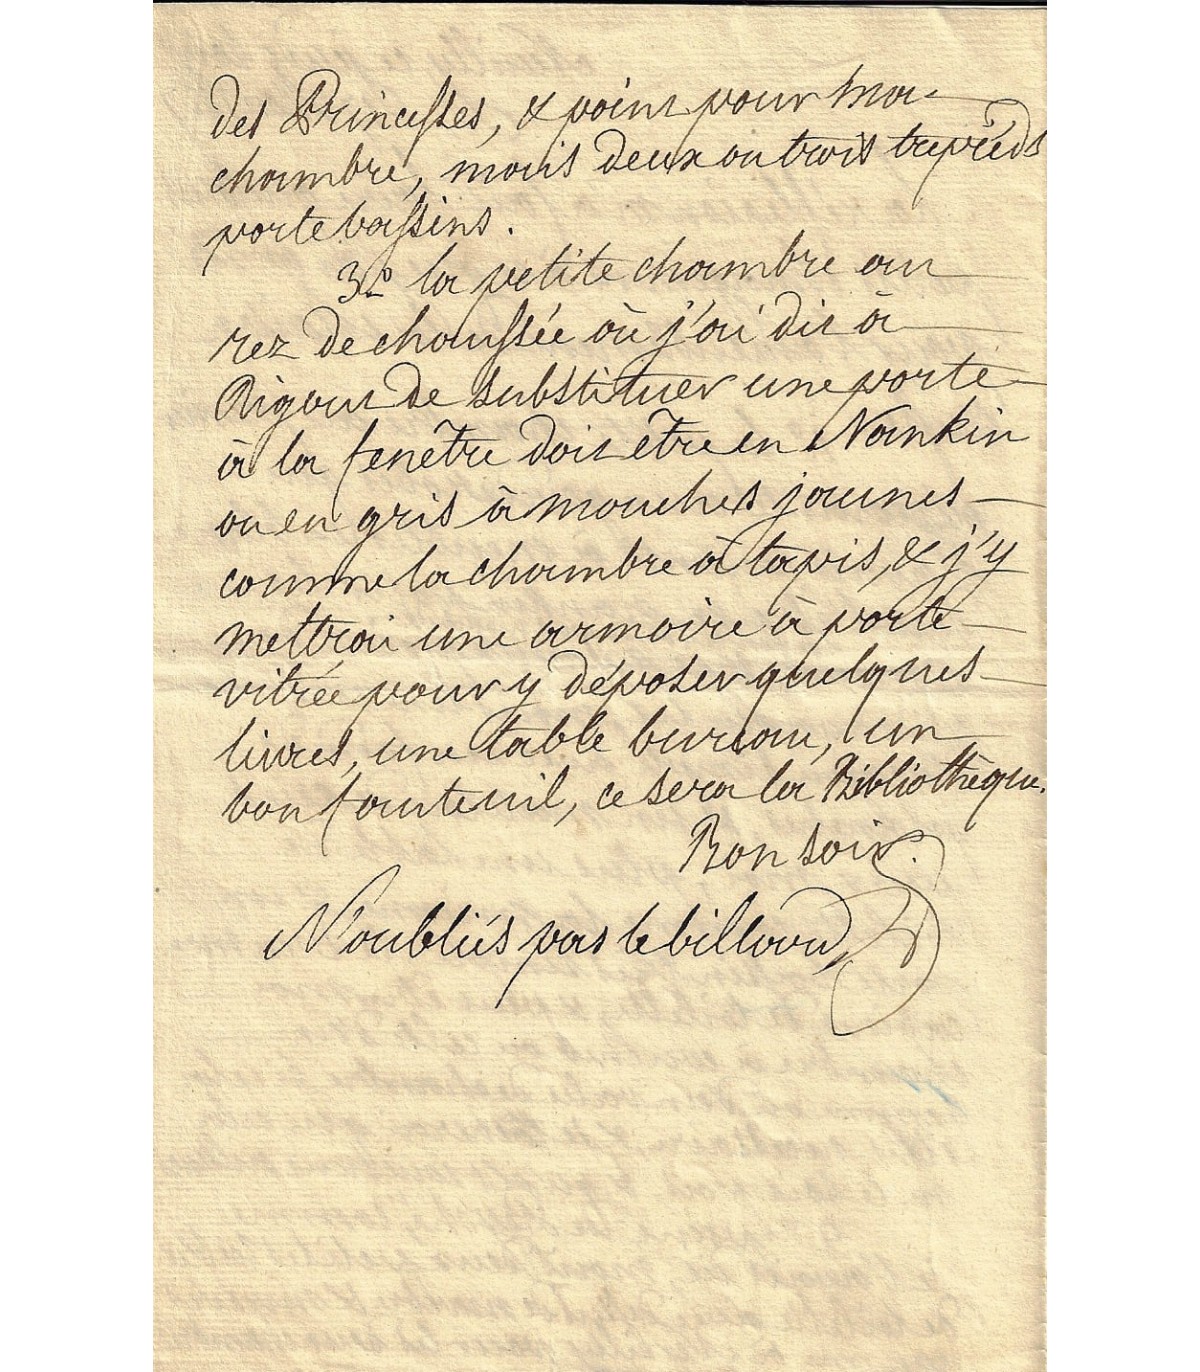 des Princesses, & point pour ma
chambre, mais deux ou trois trepieds
porte bassins.
3.o la petite chambre au
rez de chaussée où j'ai dit à
Rigaut de substituer une porte
à la fenêtre doit être en Nankin
ou en gris à mouches jaunes
comme la chambre à tapis, & j'y
mettrai une armoire à porte
vitrée pour y déposer quelques
livres, une table bureau, un
bon fauteuil, ce sera la Bibliothèque.
Bon soir.
N'oubliés pas le billard